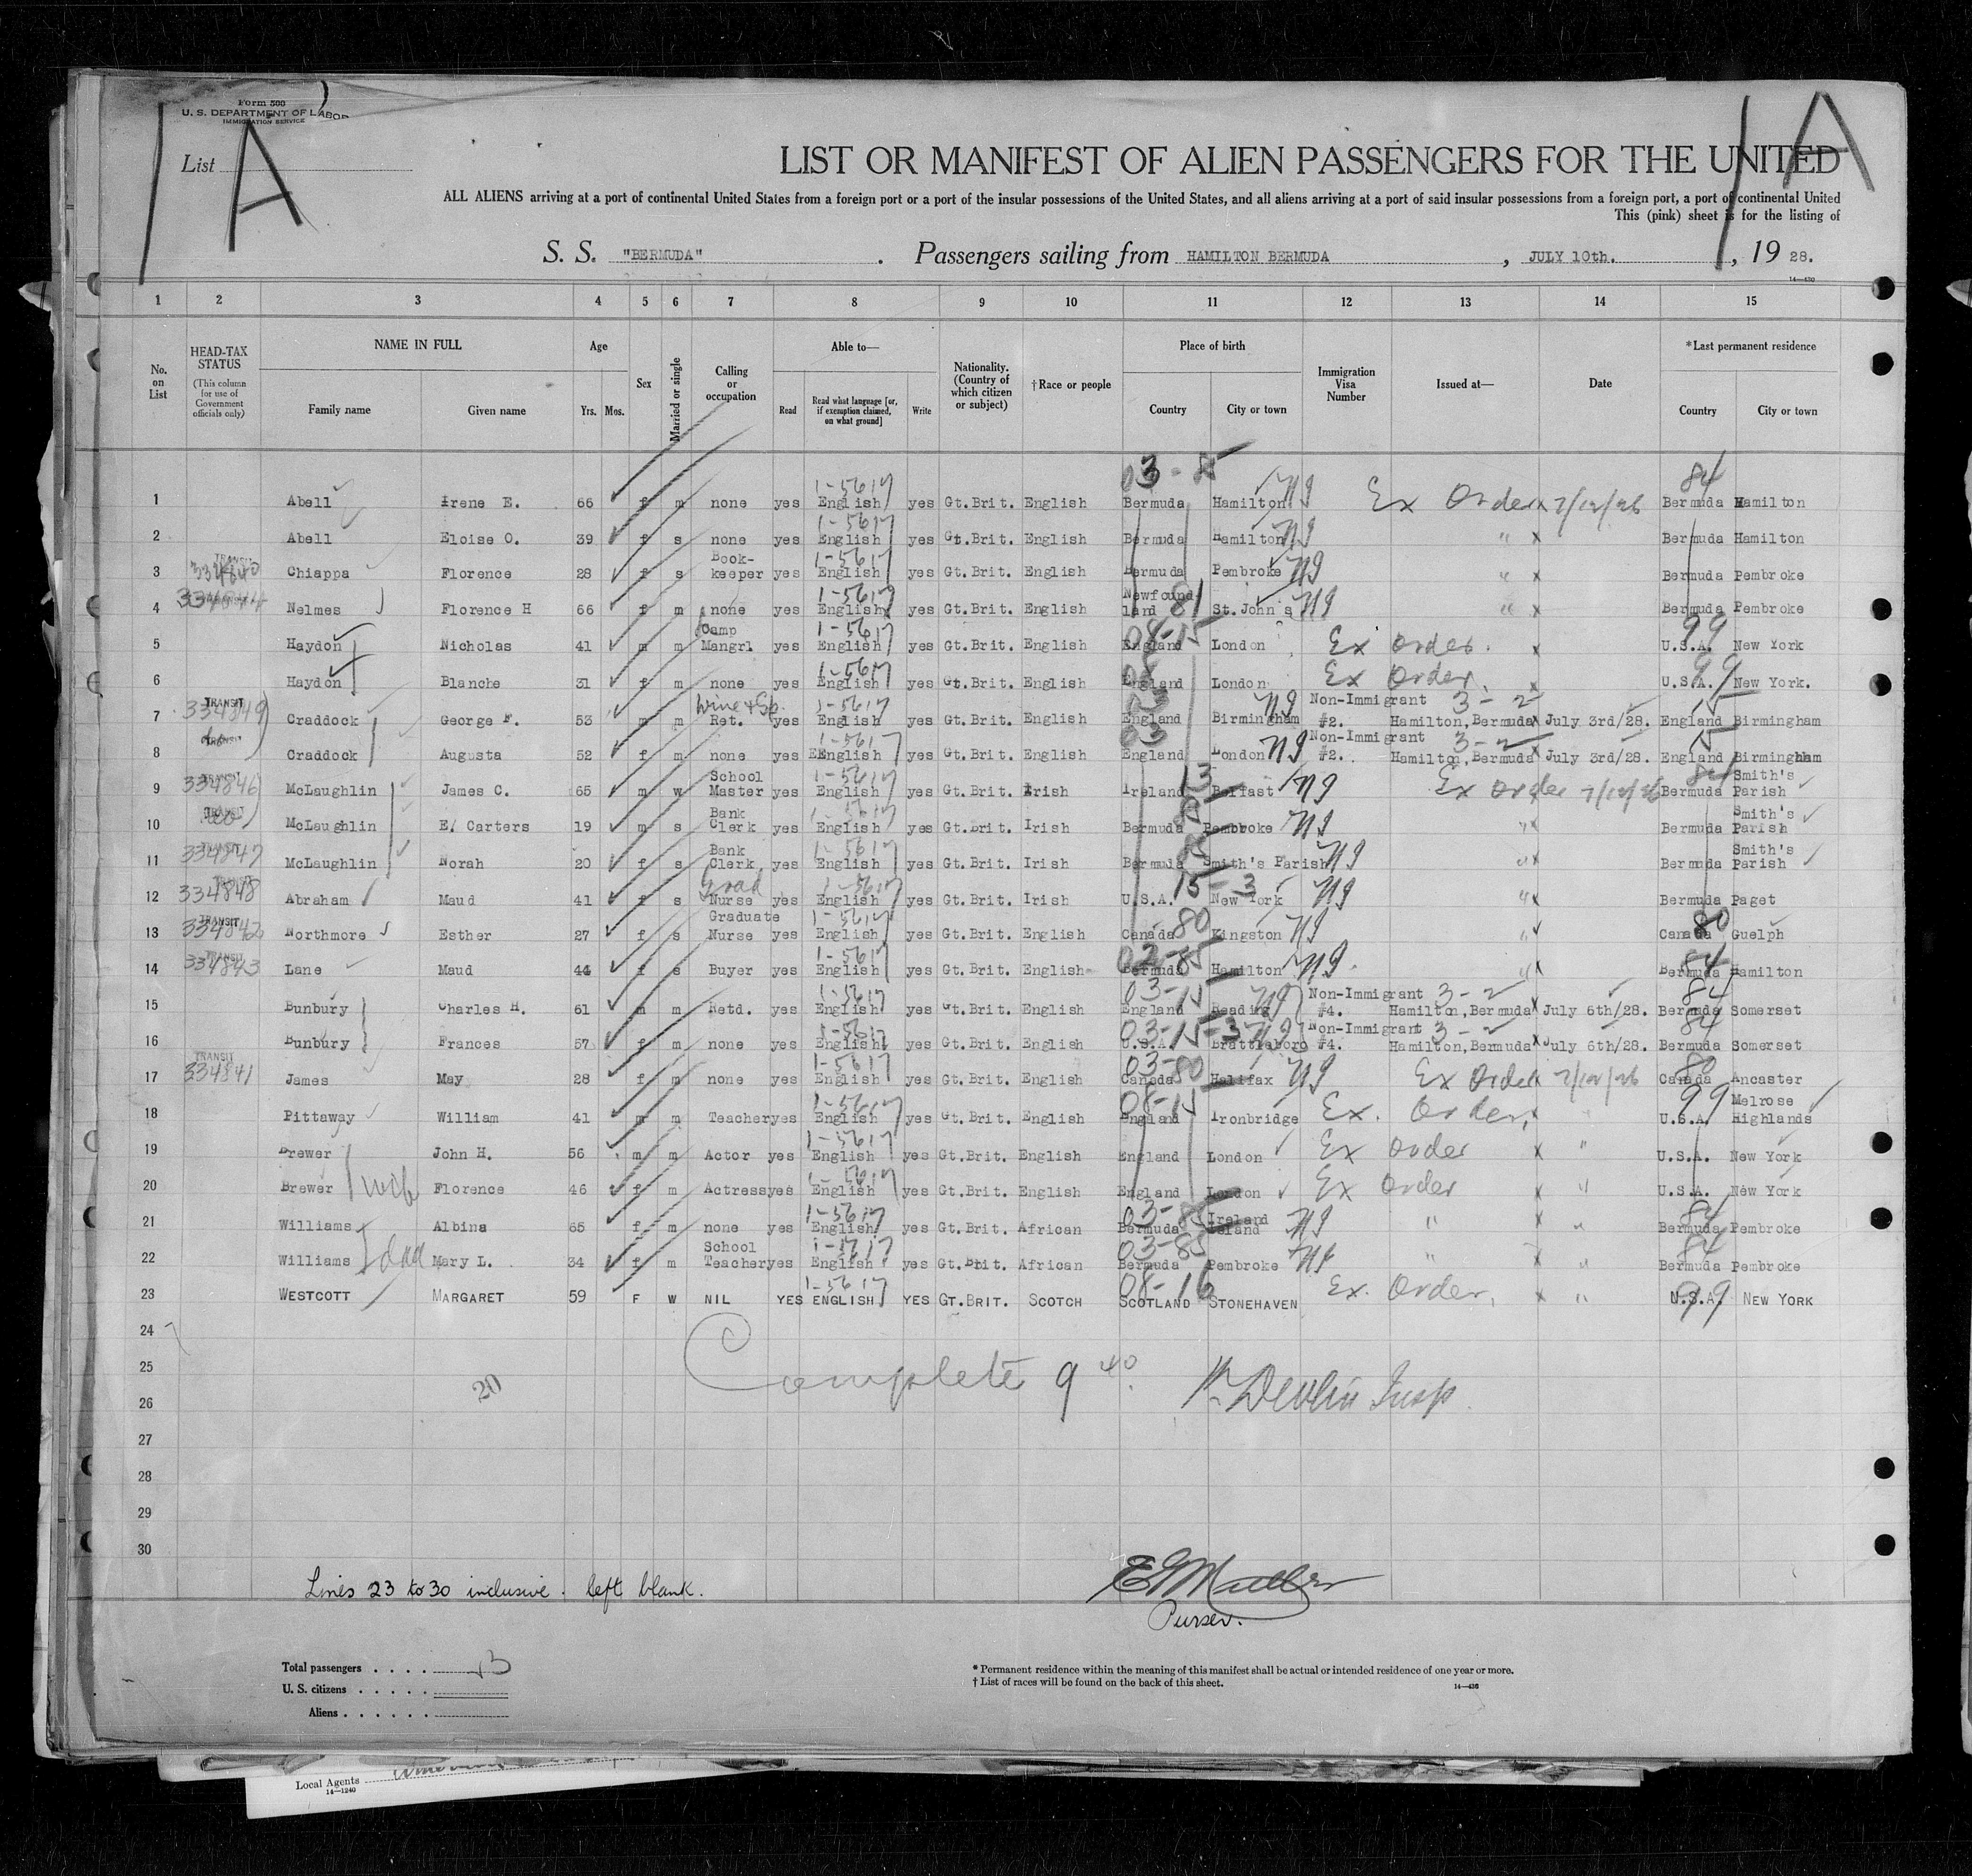 Form 500
U. S. DEPARTMENT OF LABOR
IMMIGRATION SERVICE
1A
1A
List
LIST OR MANIFEST OF ALIEN PASSENGERS FOR THE UNITED
ALL ALIENS arriving at a port of continental United States from a foreign port or a port of the insular possessions of the United States, and all aliens arriving at a port of said insular possessions from a foreign port, a port of continental United
This (pink) sheet is for the listing of
S. S. "BERMUDA". Passengers sailing from HAMILTON BERMUDA, JULY 10th., 19 28.
1 2 3 4 5 6 7 8 9 10 11 12 13 14 15
No. on List
HEAD-TAX STATUS (This column for use of Government officials only)
NAME IN FULL
Family name
Given name
Age
Yrs. Mos.
Sex
Married or single
Calling or occupation
Able to—
Read
Read what language [or, if exemption claimed, on what ground]
Write
Nationality. (Country of which citizen or subject)
†Race or people
Place of birth
Country
City or town
Immigration Visa Number
Issued at—
Date
*Last permanent residence
Country
City or town
1 Abell Irene E. 66 f m none yes English yes Gt.Brit. English Bermuda Hamilton Ex Order Bermuda Hamilton
2 Abell Eloise O. 39 f s none yes English yes Gt.Brit. English Bermuda Hamilton " Bermuda Hamilton
3 TRANSIT 334840 Chiappa Florence 28 f s Book-keeper yes English yes Gt.Brit. English Bermuda Pembroke " Bermuda Pembroke
4 334844 Nelmes Florence H 66 f m none yes English yes Gt.Brit. English Newfoundland 81 St.John's " Bermuda Pembroke
5 Haydon Nicholas 41 m m Camp Mangr yes English yes Gt.Brit. English England London Ex Order. 99 U.S.A. New York
6 Haydon Blanche 31 f m none yes English yes Gt.Brit. English England London Ex Order. 99 U.S.A. New York.
7 TRANSIT 334849 Craddock George F. 53 m m Ret. yes English yes Gt.Brit. English England Birmingham Non-Immigrant #2. 3-2 Hamilton,Bermuda July 3rd/28. England Birmingham
8 TRANSIT Craddock Augusta 52 f m none yes English yes Gt.Brit. English England London Non-Immigrant #2. 3-2 Hamilton,Bermuda July 3rd/28. England Birmingham
9 TRANSIT 334846 McLaughlin James C. 65 m w School Master yes English yes Gt.Brit. Irish Ireland Belfast Ex Order Bermuda Smith's Parish
10 McLaughlin E. Carters 19 m s Bank Clerk yes English yes Gt.Brit. Irish Bermuda Pembroke " Bermuda Smith's Parish
11 334847 McLaughlin Norah 20 f s Bank Clerk yes English yes Gt.Brit. Irish Bermuda Smith's Parish " Bermuda Smith's Parish
12 TRANSIT 334848 Abraham Maud 41 f s Grad Nurse yes English yes Gt.Brit. Irish U.S.A. New York " Bermuda Paget
13 TRANSIT 334842 Northmore Esther 27 f s Graduate Nurse yes English yes Gt.Brit. English Canada 80 Kingston " Canada 80 Guelph
14 TRANSIT 334843 Lane Maud 44 f s Buyer yes English yes Gt.Brit. English Bermuda Hamilton " 84 Bermuda Hamilton
15 Bunbury Charles H. 61 m m Retd. yes English yes Gt.Brit. English England Reading Non-Immigrant #4. 3-2 Hamilton,Bermuda July 6th/28. 84 Bermuda Somerset
16 Bunbury Frances 57 f m none yes English yes Gt.Brit. English U.S.A. Brattleboro Non-Immigrant #4. 3-2 Hamilton,Bermuda July 6th/28. 84 Bermuda Somerset
17 TRANSIT 334841 James May 28 f m none yes English yes Gt.Brit. English 03-80 Canada Halifax Ex Order 80 Canada Ancaster
18 Pittaway William 41 m m Teacher yes English yes Gt.Brit. English 08-15 England Ironbridge Ex. Order. 99 U.S.A. Melrose Highlands
19 Brewer John H. 56 m m Actor yes English yes Gt.Brit. English England London Ex Order " U.S.A. New York
20 Brewer wife Florence 46 f m Actress yes English yes Gt.Brit. English England London Ex Order " U.S.A. New York
21 Williams Albina 65 f m none yes English yes Gt.Brit. African 03-85 Bermuda Ireland Island " " 84 Bermuda Pembroke
22 Williams Mary L. 34 f m School Teacher yes English yes Gt.Brit. African 03-85 Bermuda Pembroke " " 84 Bermuda Pembroke
23 WESTCOTT MARGARET 59 F W NIL YES ENGLISH YES GT.BRIT. SCOTCH 08-16 SCOTLAND STONEHAVEN Ex. Order. " 99 U.S.A. NEW YORK
24
25
26
27
28
29
30
20
Complete 9 40
Devlin Insp
Lines 23 to 30 inclusive. left blank.
Purser.
Total passengers
U. S. citizens
Aliens
* Permanent residence within the meaning of this manifest shall be actual or intended residence of one year or more.
† List of races will be found on the back of this sheet.
Local Agents
14—1240